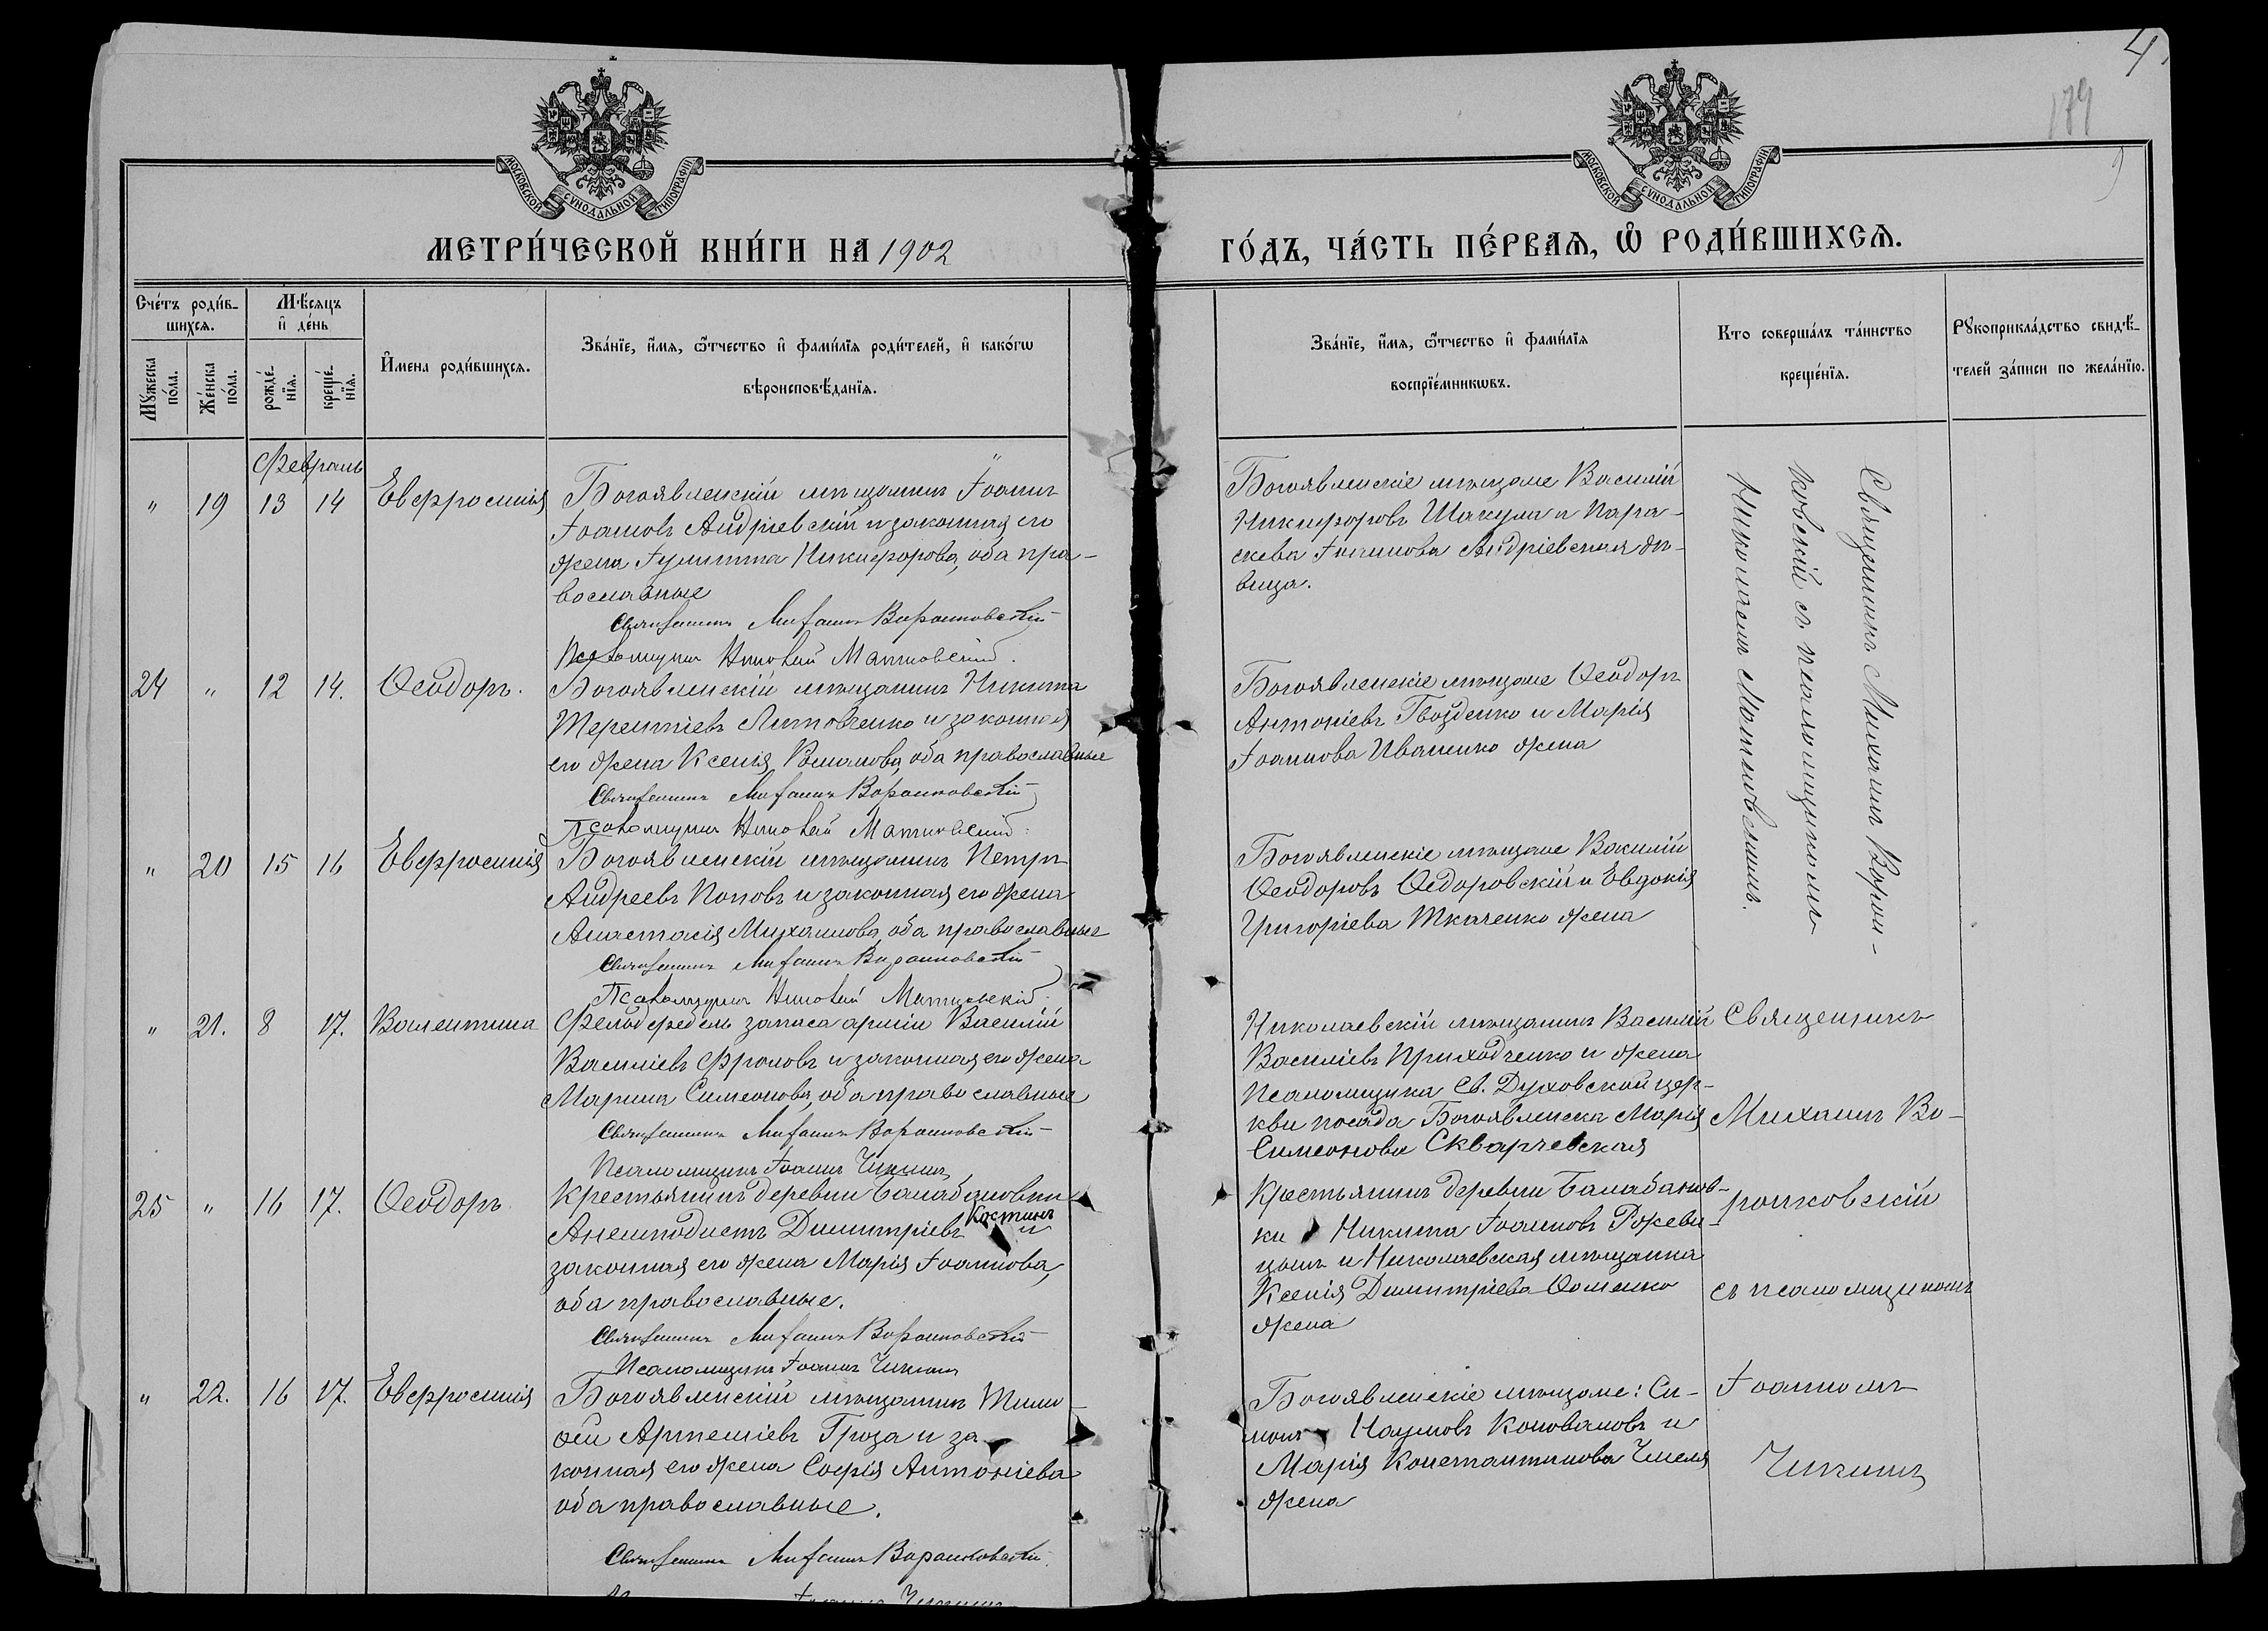 4
179
МОСКОВСКОЙ СѴНОДАЛЬНОЙ ТИПОГРАФІИ
МОСКОВСКОЙ СѴНОДАЛЬНОЙ ТИПОГРАФІИ
МЕТРИ́ЧЕСКОЙ КНИ́ГИ НА 1902
ГО́ДЪ, ЧА́СТЬ ПЕ́РВАѦ, Ѽ РОДИ́ВШИХСѦ.
Сче́тъ роди́в-
шихсѧ.
Мѣ́сѧцъ
и҆ де́нь
Мꙋ́жеска
по́ла.
Же́нска
по́ла.
рожде́-
нїѧ.
креще́-
нїѧ.
И҆мена роди́вшихсѧ.
Зва́нїе, и҆́мѧ, ѻ҆́тчество и҆ фами́лїѧ роди́телей, и҆ како́гѡ
вѣроисповѣ́данїѧ.
Зва́нїе, и҆́мѧ, ѻ҆́тчество и҆ фами́лїѧ
воспрїе́мникѡвъ.
Кто соверша́лъ та́инство
креще́нїѧ.
Рꙋкоприкла́дство свидѣ́-
телей за́писи по жела́нїю.
Февраль
" 19 13 14 Евфросинія
Богоявленскій мѣщанинъ Іоаннъ
Іоанновъ Андріевскій и законная его
жена Іулитта Никифорова, оба пра-
вославные
Священникъ Михаилъ Воронковскій
Псаломщикъ Николай Матковскій.
Богоявленскіе мѣщане Василій
Никифоровъ Шакула и Пара-
скева Іоаннова Андріевская дѣ-
вица.
Священникъ Михаилъ Ворон-
ковскій съ псаломщикомъ
Николаемъ Матковскимъ.
24 " 12 14. Ѳеодоръ.
Богоявленскій мѣщанинъ Никита
Терентіевъ Литовченко и законная
его жена Ксенія Романова, оба православные
Священникъ Михаилъ Воронковскій
Псаломщикъ Николай Матковскій.
Богоявленскіе мѣщане Ѳеодоръ
Антоніевъ Гвозденко и Марія
Іоаннова Иваненко жена
" 20 15 16 Евфросинія
Богоявленскій мѣщанинъ Петръ
Андреевъ Поповъ и законная его жена
Анастасія Михаилова, оба православные
Священникъ Михаилъ Воронковскій
Псаломщикъ Николай Матковскій.
Богоявленскіе мѣщане Василій
Ѳеодоровъ Ѳедоровскій и Евдокія
Григоріева Ткаченко жена
" 21. 8 17. Валентина
Фельдфебель запаса арміи Василій
Василіевъ Фроловъ и законная его жена
Марина Симеонова, оба православные
Священникъ Михаилъ Воронковскій
Псаломщикъ Іоаннъ Чикинъ
Николаевскій мѣщанинъ Василій
Василіевъ Приходченко и жена
псаломщика Св. Духовской цер-
кви посада Богоявленска Марія
Симеонова Скварчевская
Священникъ
Михаилъ Во-
ронковскій
съ псаломщикомъ
Іоанномъ
Чикинъ
25 " 16 17. Ѳеодоръ
Крестьянинъ деревни Балабановки
Анемподистъ Димитріевъ Костинъ и
законная его жена Марія Іоаннова,
оба православные.
Священникъ Михаилъ Воронковскій
Псаломщикъ Іоаннъ Чикинъ
Крестьянинъ деревни Балабанов-
ки Никита Іоанновъ Рожеви-
цынъ и Николаевская мѣщанка
Ксенія Димитріева Ѳоменко
жена
" 22. 16 17. Евфросинія
Богоявленскій мѣщанинъ Тимо-
ѳей Артеміевъ Гроза и за-
конная его жена Софія Антоніева
оба православные.
Священникъ Михаилъ Воронковскій.
Іоаннъ Чикинъ
Богоявленскіе мѣщане: Си-
монъ Наумовъ Коноваловъ и
Марія Константинова Чмеля
жена